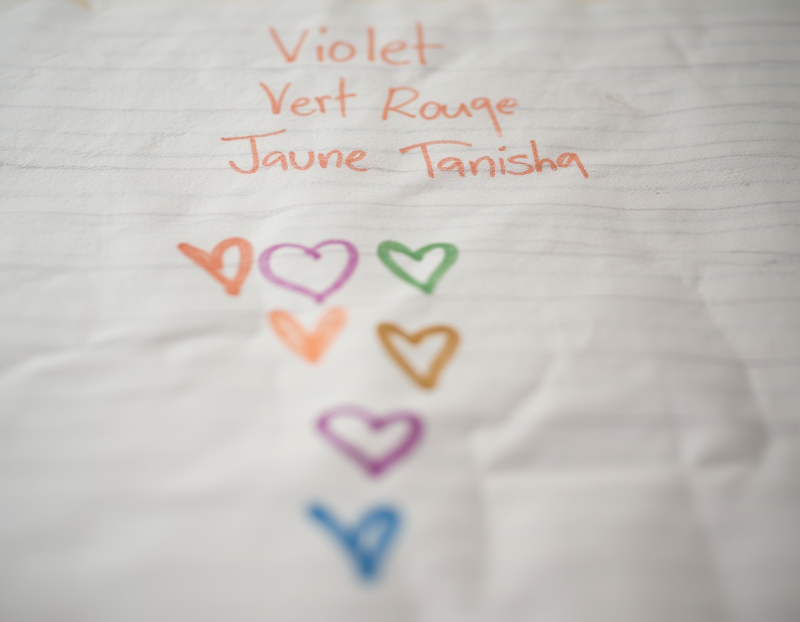 Violet
Vert Rouge
Jaune Tanisha